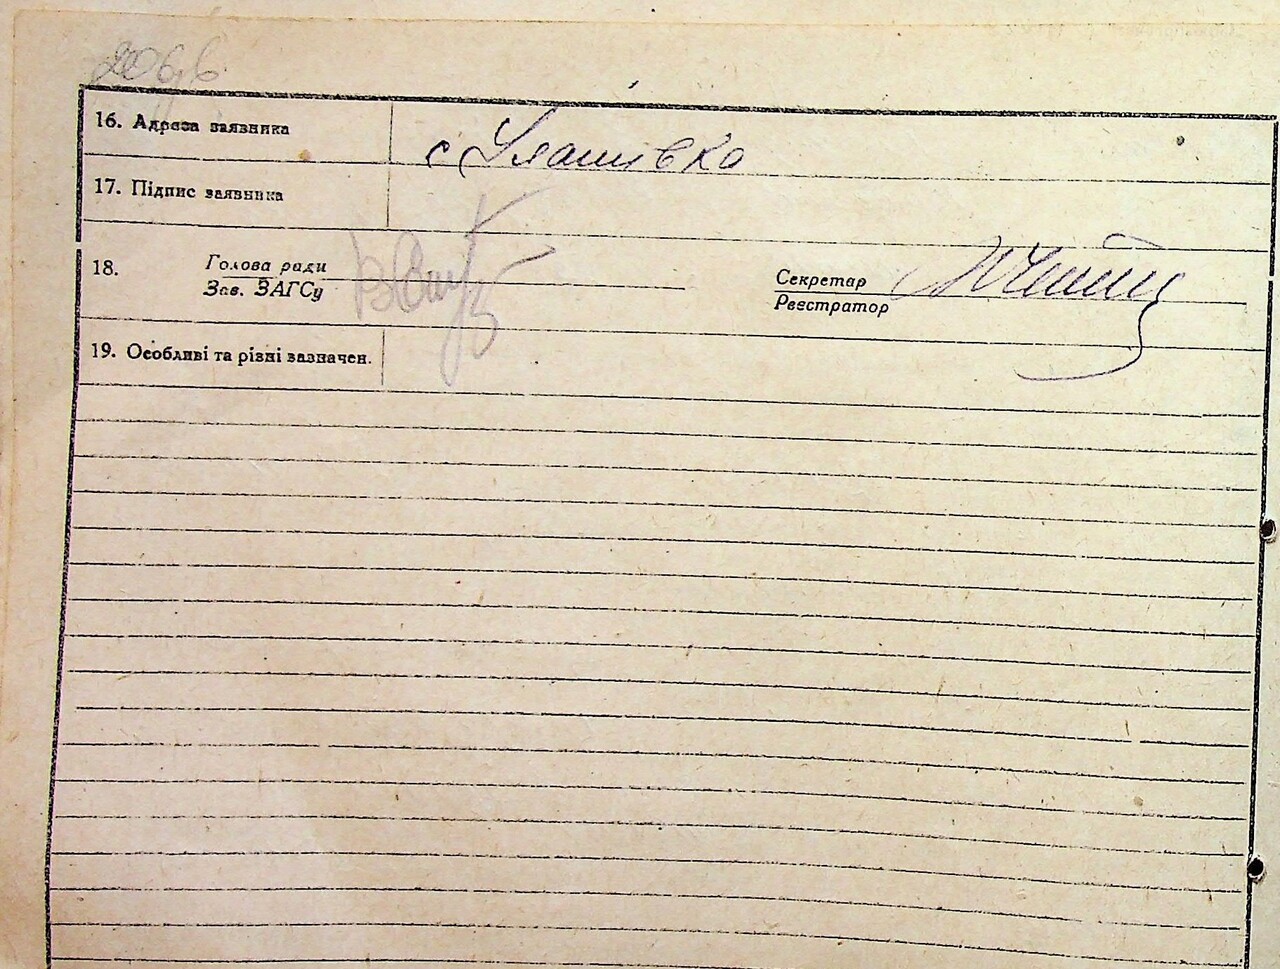 206
16. Адреса заявника с Улашівка
17. Підпис заявника
18. Голова ради Секретар
Зав. ЗАГСу Реєстратор
19. Особливі та різні зазначен.